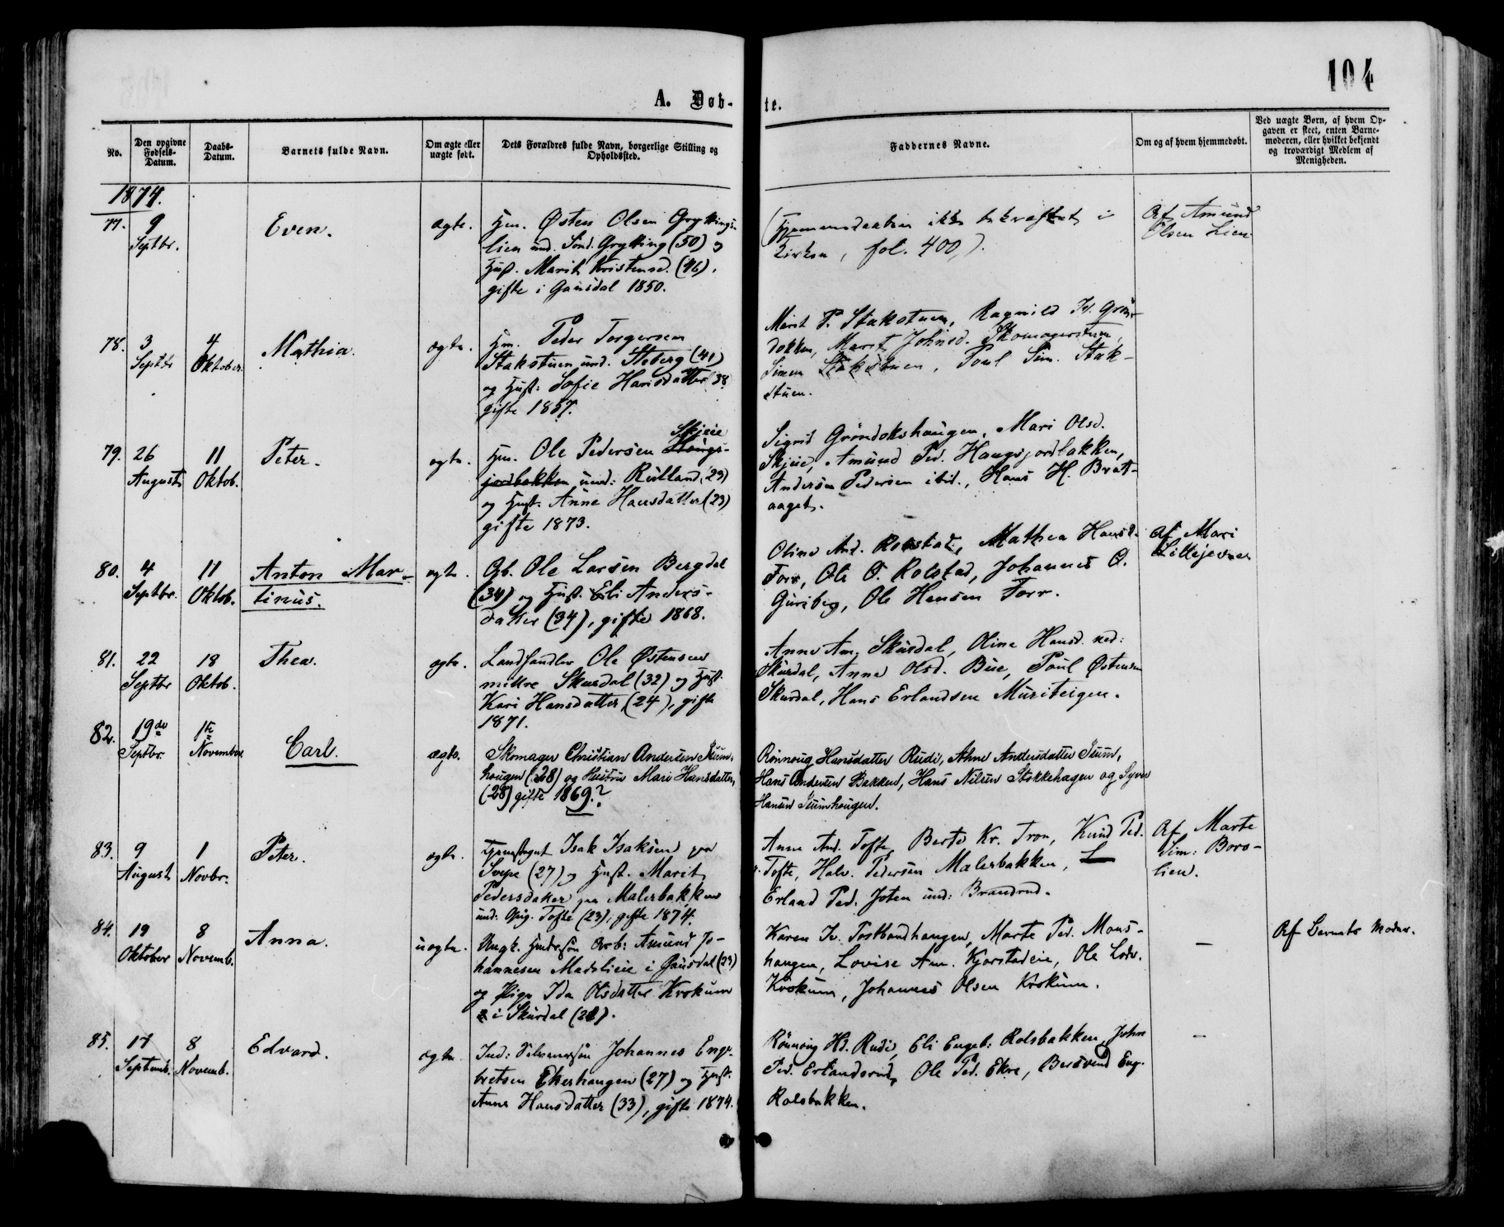 104
A. Døb-
te.
No.
Den opgivne Fødsels-Datum.
Daabs-Datum.
Barnets fulde Navn.
Om ægte eller uægte født.
Dets Forældres fulde Navn, borgerlige Stilling og Opholdssted.
Faddernes Navne.
Om og af hvem hjemmedøbt.
Ved uægte Børn, af hvem Op-
gaven er skeet, enten Barne-
moderen, eller hvilket bekjendt
og troværdigt Medlem af
Menigheden.
1874.
77. 9 Septbr.
Even.
ægte.
Hm. Østen Olsen Gryttings-
lien und. Sönd. Grytting (50) og
Hust. Marit Kristensd. (46),
gifte i Gausdal 1850.
(Hjemmedaaben ikke bekræftet i
Kirken, fol. 400,).
Af Amund
Olsen Lien
78. 3 Septbr 4 Oktober.
Mathia.
ægte.
Hm. Peder Torgersen
Stakstuen und. Steberg (41)
og Hust. Sofie Hansdatter (38
gifte 1857.
Marit P. Stakstuen, Ragnild
dokken, Marit Johnsd.
Simen Stakstuen, Poul Sim. Stak-
stuen.
79. 26 August 11 Oktob.
Peter.
ægte.
Hm. Ole Pedersen Skjeie
jordbakken und: Rutland, (29)
og Hust. Anne Hansdatter (23)
gifte 1873.
Sigrid Grøndokshaugen, Mari Olsd.
Skjeie, Amund Ped. Haugsjordbakken,
Andersen Pedersen ibid., Hans H. Bratt-
aaget.
80. 4 Septbr. 11 Oktob.
Anton Mar-
tinus.
ægte.
Gb. Ole Larsen Bergdal
(34) og Hust. Eli Anders-
datter (34), gifte 1868.
Oline And. Rolstad, Mathea Hansd.
Forr, Ole O. Rolstad, Johannes O.
Guriberg, Ole Hansen Forr.
Af Mari
81. 22 Septbr 18 Oktob.
Thea.
ægte.
Landhandler Ole Østensen
Skurdal (32) og Hust.
Kari Hansdatter, (24), gifte
1871.
Anne Am. Skurdal, Oline Hansd. ned:
Skurdal, Anne Olsd. Bue, Poul Østensen
Skurdal, Hans Erlandsen Muriteigen.
82. 19de Septbr. 1te November
Carl.
ægte.
Skomager Christian Andersen
haugen (28) og Hustru Mari Hansdatter,
(28) gifte 1869.?
Rønnoug Hansdatter Rudi, Ahne Andersdatter
Hans Andersen Bakken, Hans Nilsen Stokkehagen og Syver
Hansen
83. 9 August 1 Novbr.
Peter.
ægte.
Isak Isaksen paa
(27) og Hust. Marit
Pedersdatter paa Malerbakken
und: Tofte (23), gifte 1874.
Anne And. Tofte, Berte Kr. Tron, Knud Ped.
Tofte, Halv. Pedersen Malerbakken,
Erland Ped. Josten und: Brandrud.
Af Marte
Sim: Bors-
lien.
84. 19 Oktober 8 Novemb.
Anna.
uægte.
Ungk. Arb: Amund Jo-
hannesen Madslieie i Gausdal (29)
og Pige Ida Olsdatter Krokum
i Skurdal (21).
Karen Marte Ped. Mons-
haugen, Lovise Am. Kjorstadeie, Ole
Krokum, Johannes Olsen Krokum.
—
Af Barnets Moder.
85. 17 Septemb. 8 Novemb.
Edvard.
ægte.
Ind: Selveiersøn Johannes Enge-
bretsen Ekerhaugen (27) og Hust.
Anne Hansdatter (33), gifte 1874.
Rønnoug Hd. Rudi, Eli Engeb. Rolsbakken, John
Ped. Erlandsrud, Ole Pd. Ekre, Bersvend Eng.
Rolsbakken.
—